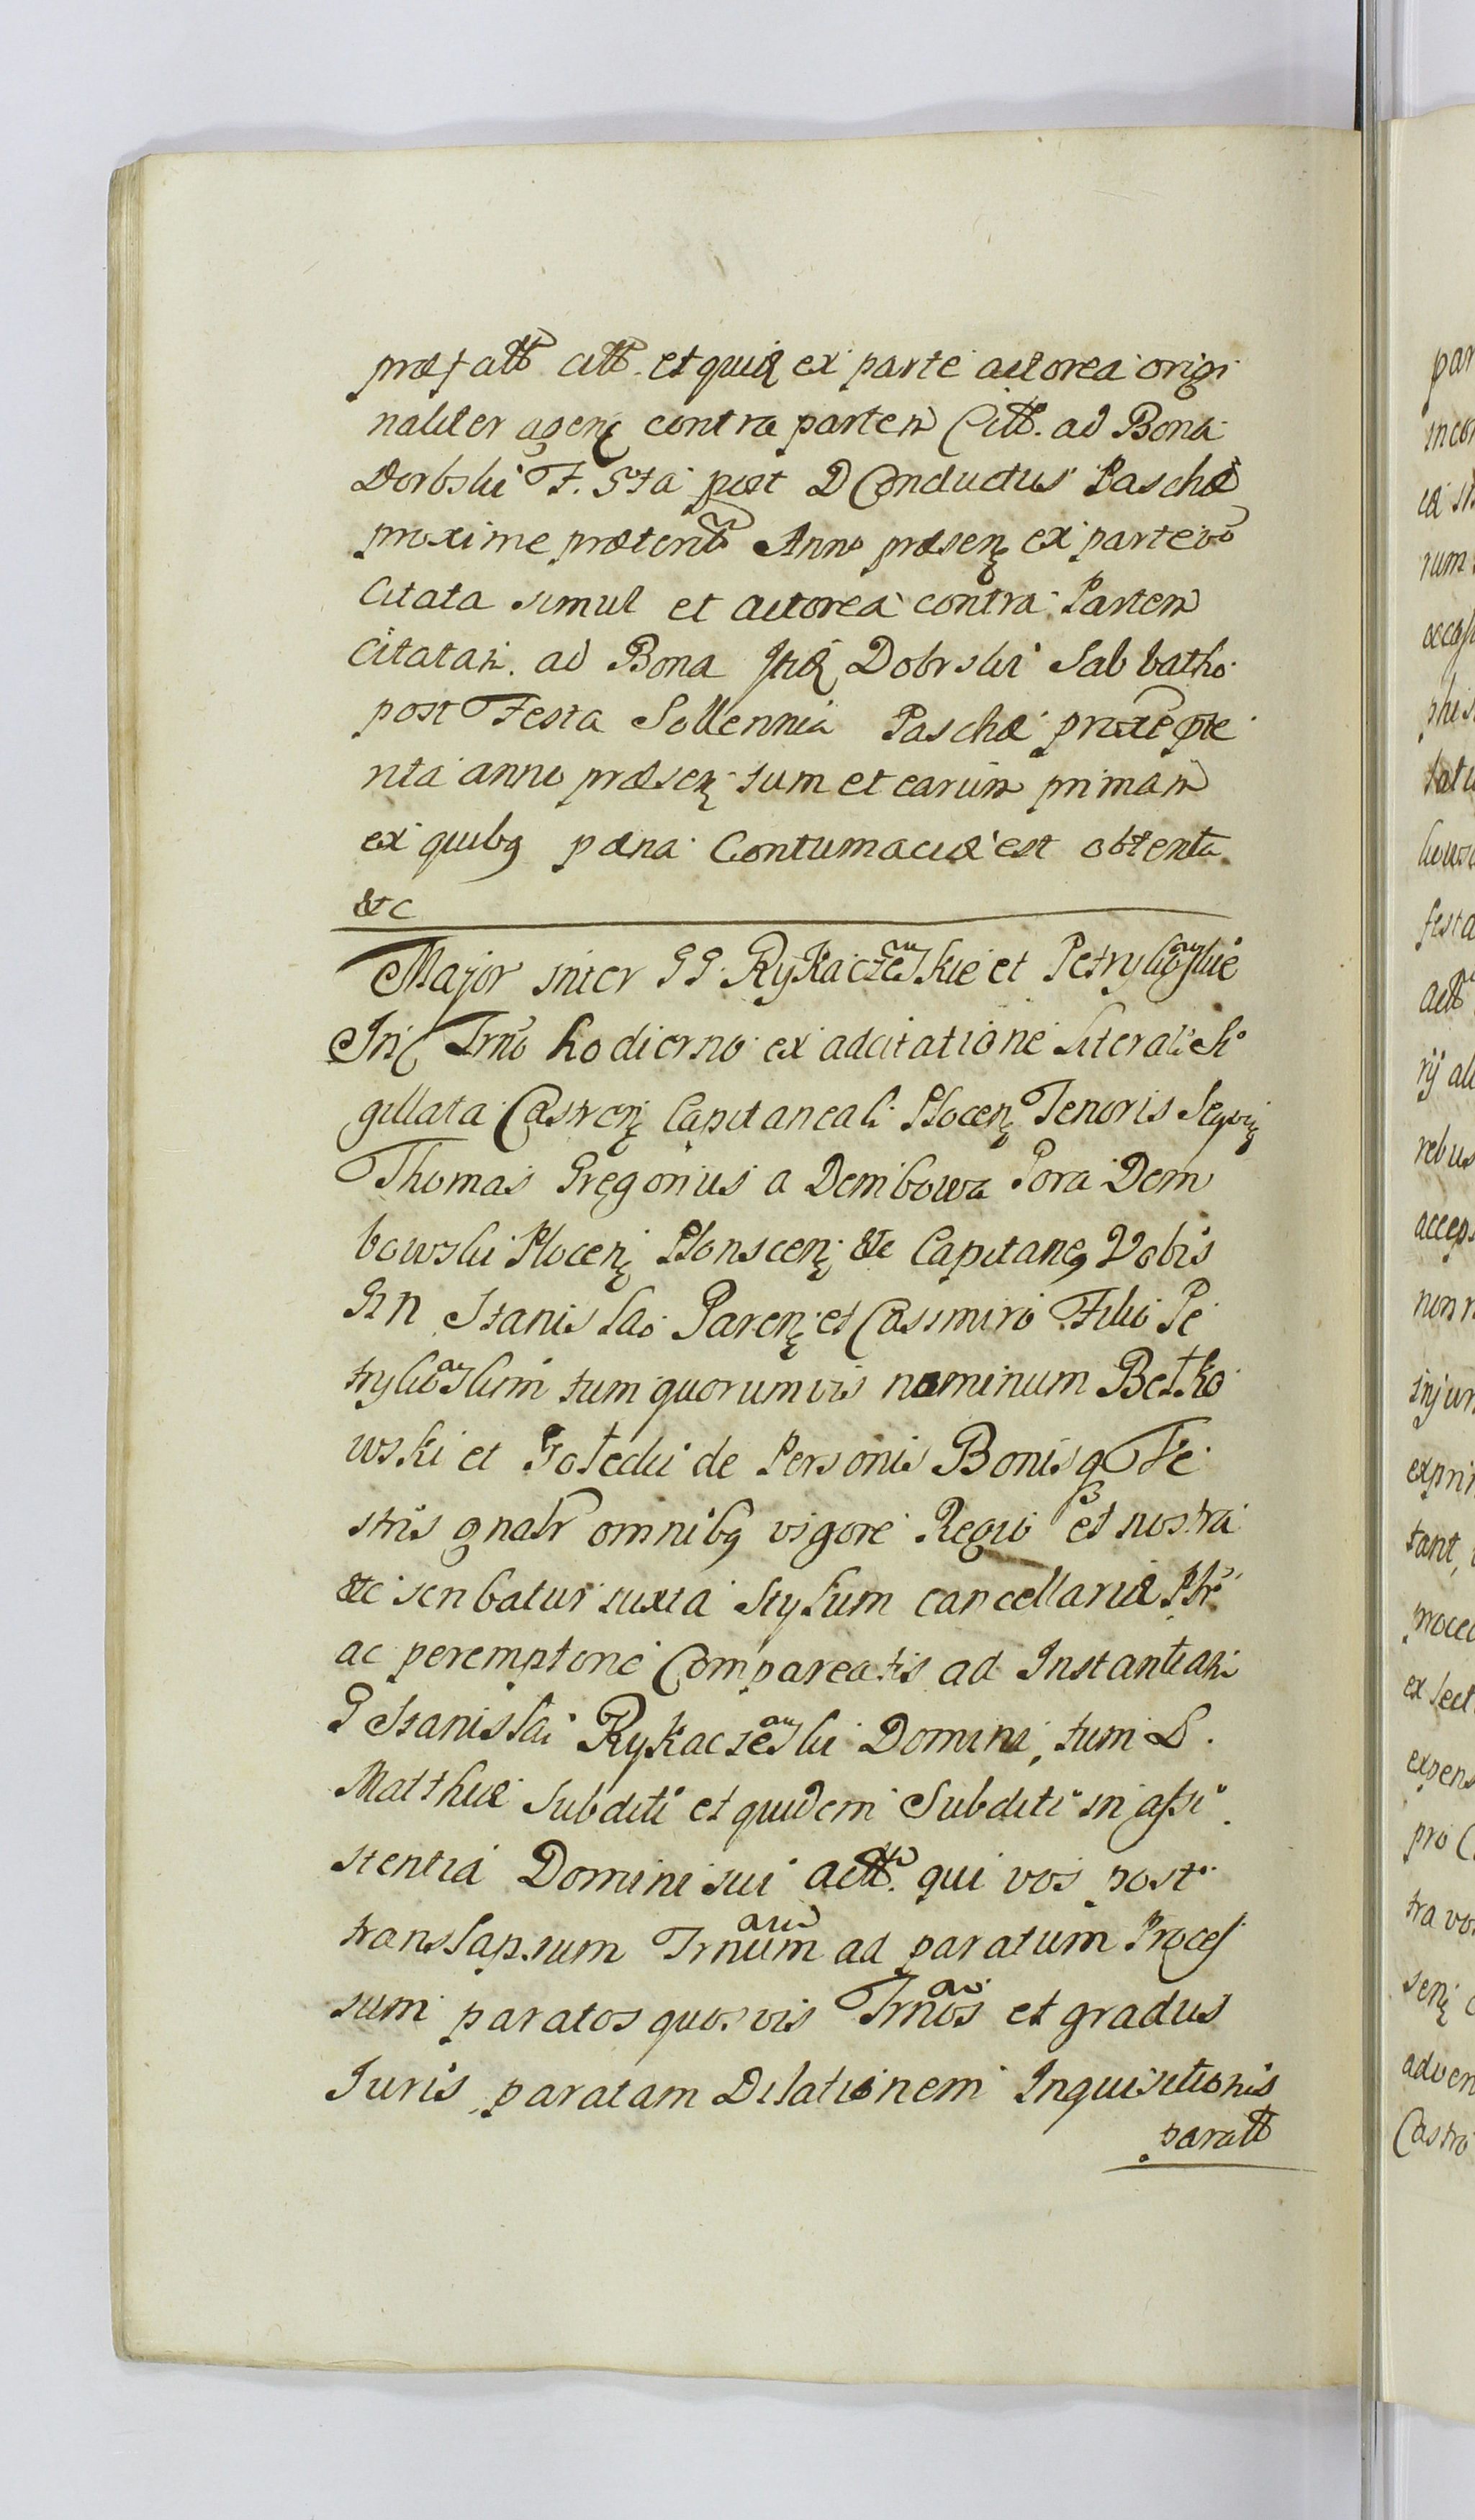 præfatt citt. et quid ex parte actorea origi
naliter agen contra partem Citt. ad Bona
Dorbski F. 5ta post D Conductus Paschæ
proxime præterito Anno præsen ex parte vo
Citata simul et actorea contra Partem
Citatam. ad Bona Dobrski Sabbatho
post Festa Sollennia Paschæ proxe præ
rita anno præsen tum et earum primam
ex quibq pæna Contumaciæ est obtenta
&c
Major inter GG. Rykaczewskie et Petrykowskie
In Trno hodierno ex adcitatione literali si
gillata Castren Capitaneali Plocen Tenoris Seqven
Thomas Gregorius a Dembowa Gora Dem
bowski Plocen Plonscen &c Capitaneq Vobis
Gn Stanislao Paren et Casimiro Filio Pe
trykowskim tum quorumvis nominum Betko
wski et Gotecki de Personis Bonisq Ve
stris gnalr omnibq vigore Regio et nostra
&c scribatur iuxta Stylum cancellariæ Phr
ac peremptorie Compareatis ad Instantiam
G Stanislai Rykaczewski Domini, tum L.
Matthiæ Subditi et quidem Subditi in assi
stentia Domini sui actt. qui vos post
translapsum Trnum ad paratum Proces
sum paratos quosvis Trnos et gradus
Iuris paratam Dilationem Inquisitionis
paratt
par
incor
rum
phis
tatu
festa
actt
rebus
accep
non
injur
exprim
tant,
proced
ex sect
expens
pro C
tra vo
sen
adven
Castro